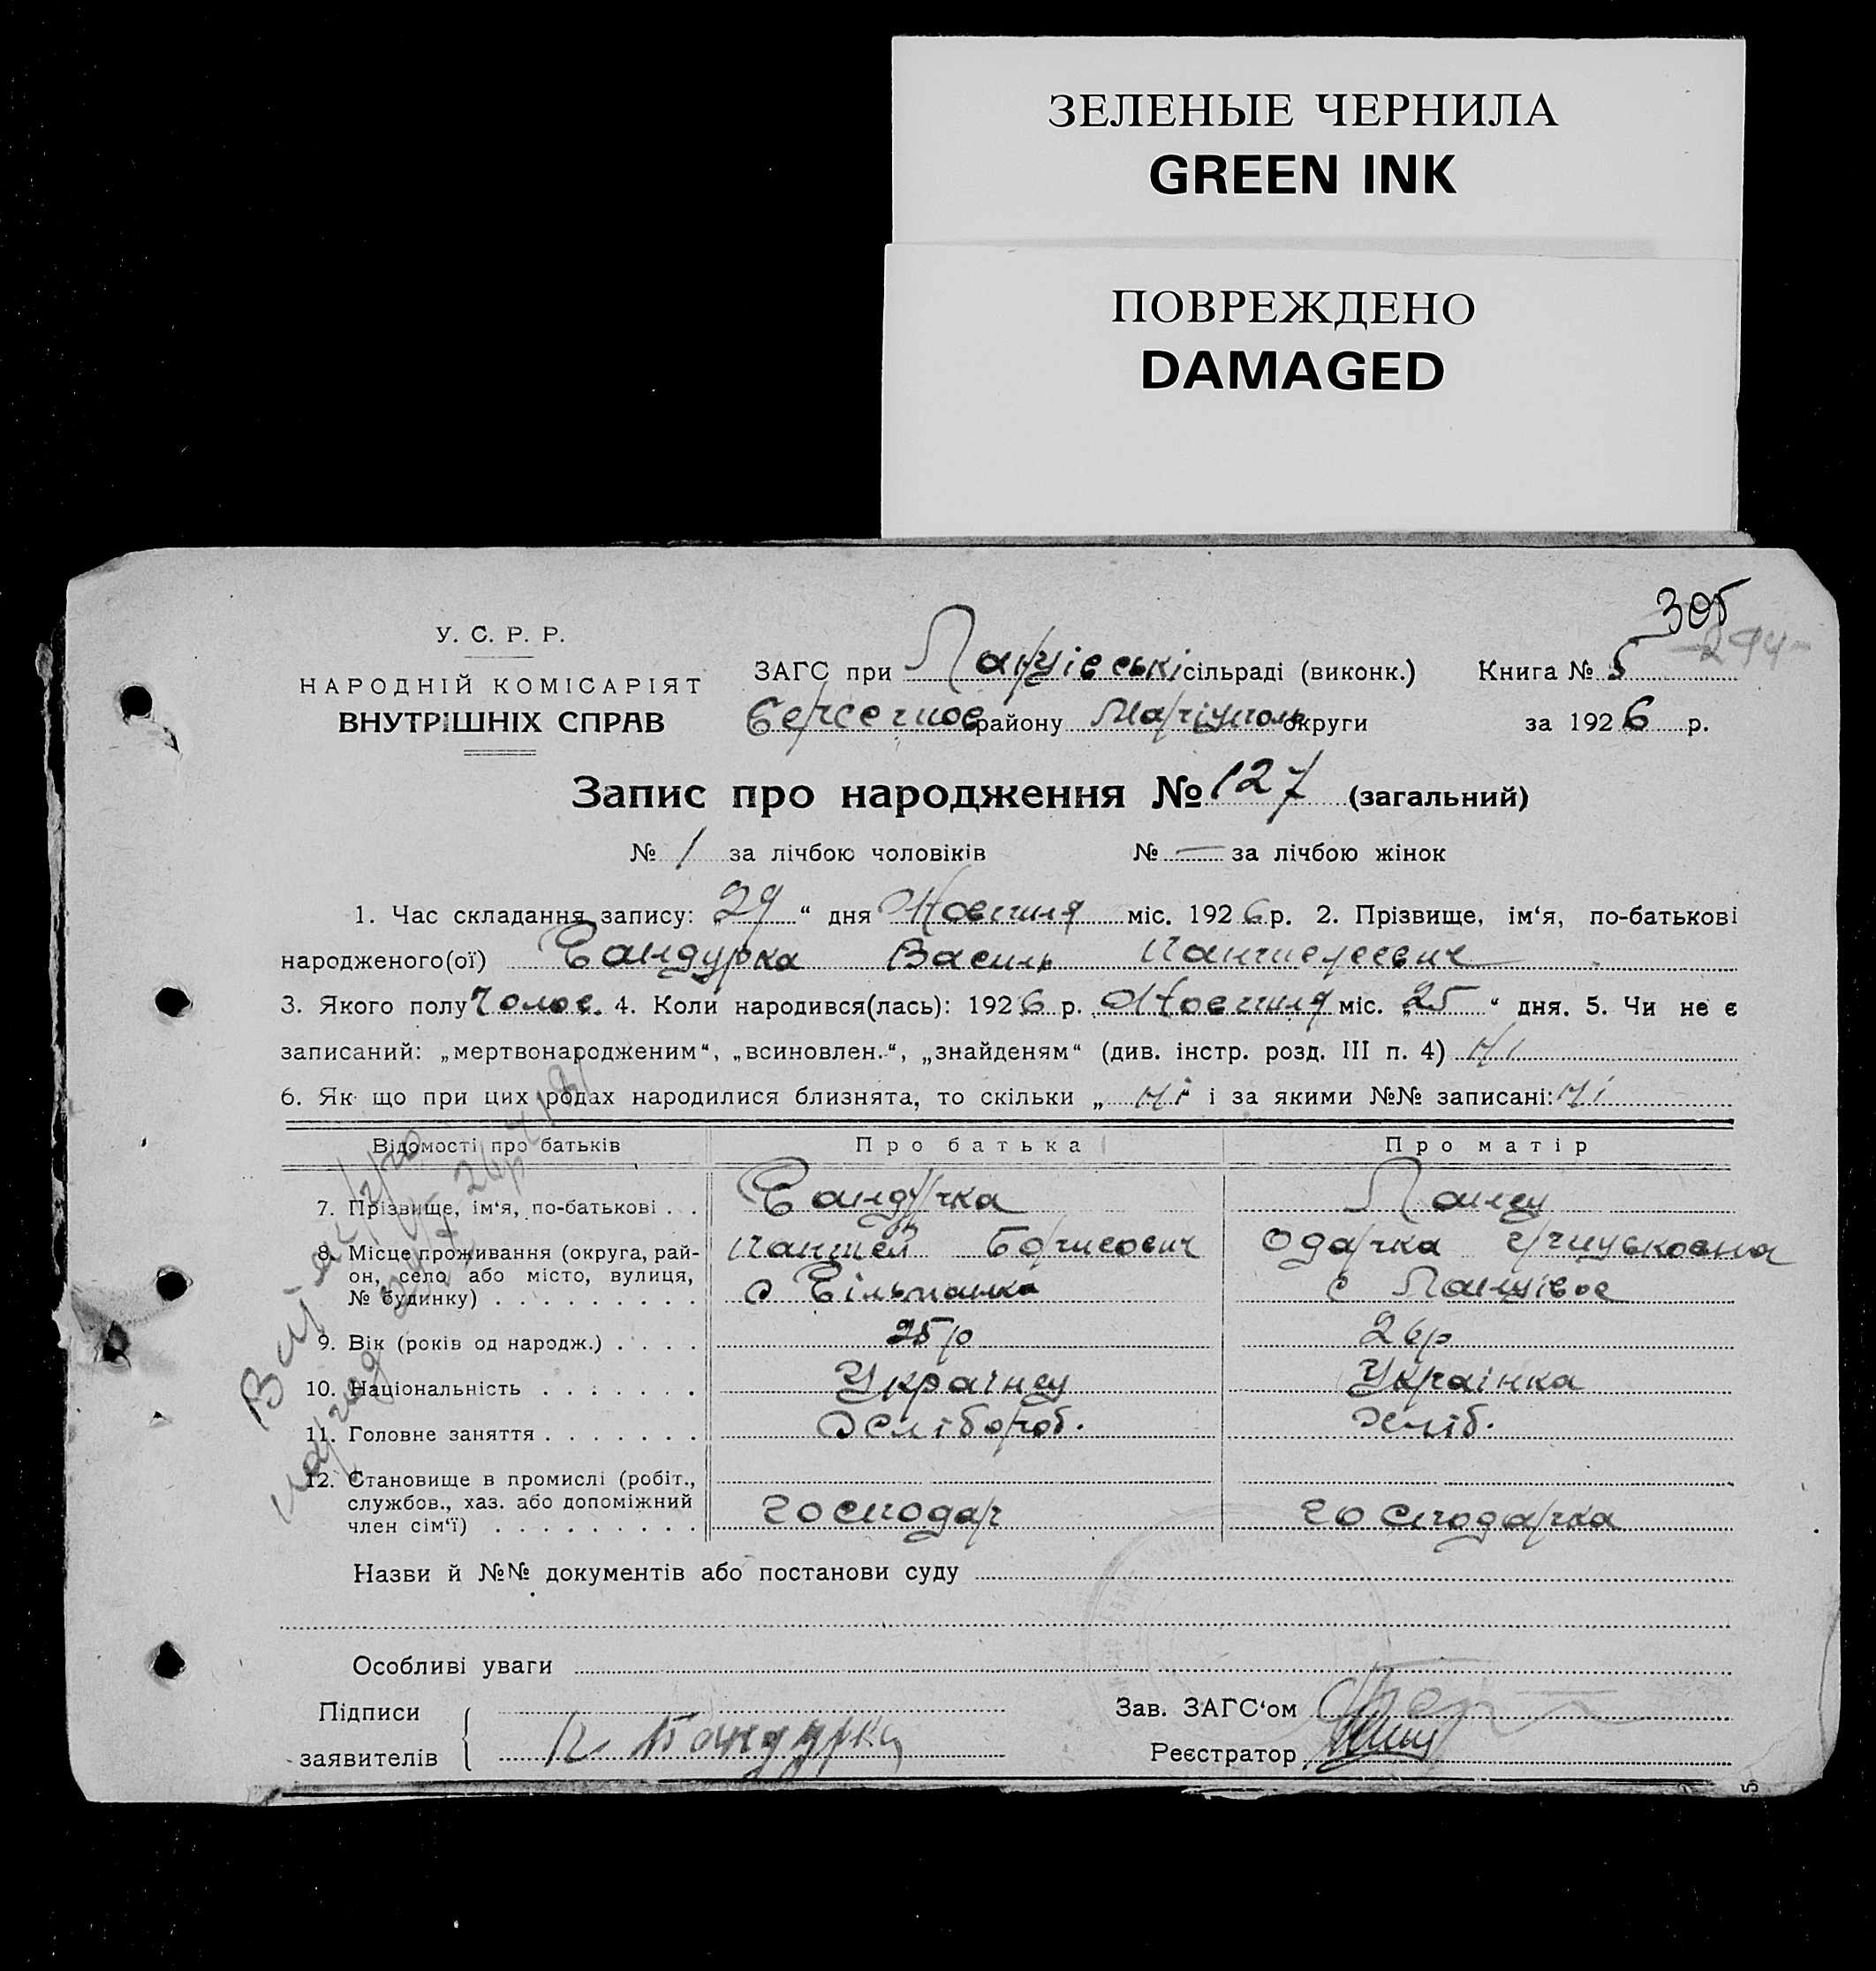 ЗЕЛЕНЫЕ ЧЕРНИЛА
GREEN INK
ПОВРЕЖДЕНО
DAMAGED
305
294
У. С. Р. Р.
НАРОДНІЙ КОМІСАРІЯТ
ВНУТРІШНІХ СПРАВ
ЗАГС при сільраді (виконк.) Книга № 5
району Маріуполь округи за 1926 р.
Запис про народження № 127 (загальний)
№ 1 за лічбою чоловіків № — за лічбою жінок
1. Час складання запису: 29 “ дня Жовтня міс. 1926 р. 2. Прізвище, ім‘я, по-батькові
народженого(ої) Бандурка Василь
3. Якого полу Чолов. 4. Коли народився(лась): 1926 р. Жовтня міс. „25 “ дня. 5. Чи не є
записаний: „мертвонародженим“, „всиновлен.“, „знайденям“ (див. інстр. розд. III п. 4) ні
6. Як що при цих родах народилися близнята, то скільки „ ні і за якими №№ записані: ні
Відомості про батьків Про батька Про матір
7. Прізвище, ім‘я, по-батькові . . Бандурка
8. Місце проживання (округа, рай-
он, село або місто, вулиця,
№ будинку) . . . . . . . . .
Борисович Одарка
с
9. Вік (років од народж.) . . . . 25 р 26 р
10. Національність . . . . . . . Українец Українка
11. Головне заняття . . . . . . . Хлібороб. хліб.
12. Становище в промислі (робіт.,
службов., хаз. або допоміжний
член сім‘ї) . . . . . . . . . господар господарка
Назви й №№ документів або постанови суду
Особливі уваги
Підписи
заявителів П. Бандурка
Зав. ЗАГС‘ом
Реєстратор